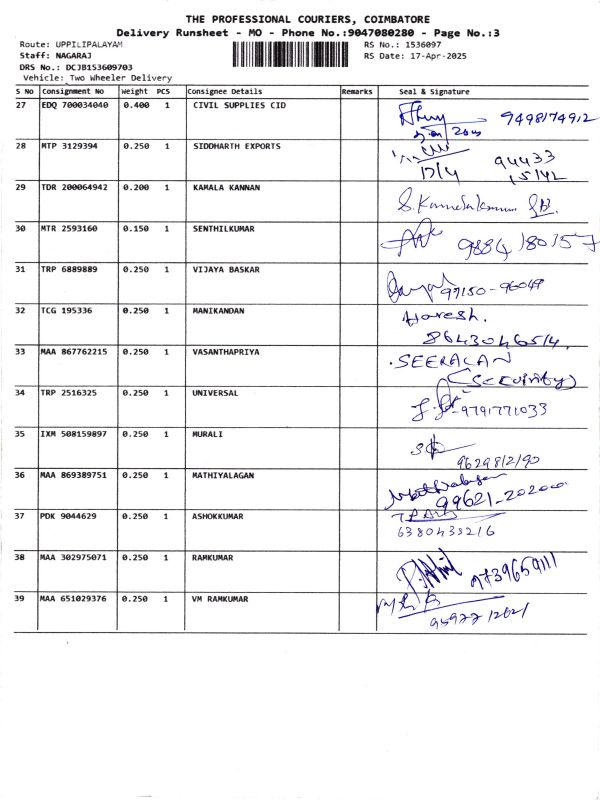 THE PROFESSIONAL COURIERS, COIMBATORE
Delivery Runsheet - MO - Phone No.:9047080280 - Page No.:3
Route: UPPILIPALAYAM
RS No.: 1536097
Staff: NAGARAJ
RS Date: 17-Apr-2025
DRS No.: DCJB153609703
Vehicle: Two Wheeler Delivery
S No Consignment No Weight PCS Consignee Details Remarks Seal & Signature
27 EDQ 700034040 0.400 1 CIVIL SUPPLIES CID
9498174912
28 MTP 3129394 0.250 1 SIDDHARTH EXPORTS
17/4 94433
15142
29 TDR 200064942 0.200 1 KAMALA KANNAN
30 MTR 2593160 0.150 1 SENTHILKUMAR
9884180157
31 TRP 6889889 0.250 1 VIJAYA BASKAR
97150-96049
32 TCG 195336 0.250 1 MANIKANDAN
Haresh.
8643046514.
33 MAA 867762215 0.250 1 VASANTHAPRIYA
SEERALAN
(Security)
34 TRP 2516325 0.250 1 UNIVERSAL
9791771033
35 IXM 508159897 0.250 1 MURALI
9629812190
36 MAA 869389751 0.250 1 MATHIYALAGAN
99621-20200
37 PDK 9044629 0.250 1 ASHOKKUMAR
6380433216
38 MAA 302975071 0.250 1 RAMKUMAR
9739659111
39 MAA 651029376 0.250 1 VM RAMKUMAR